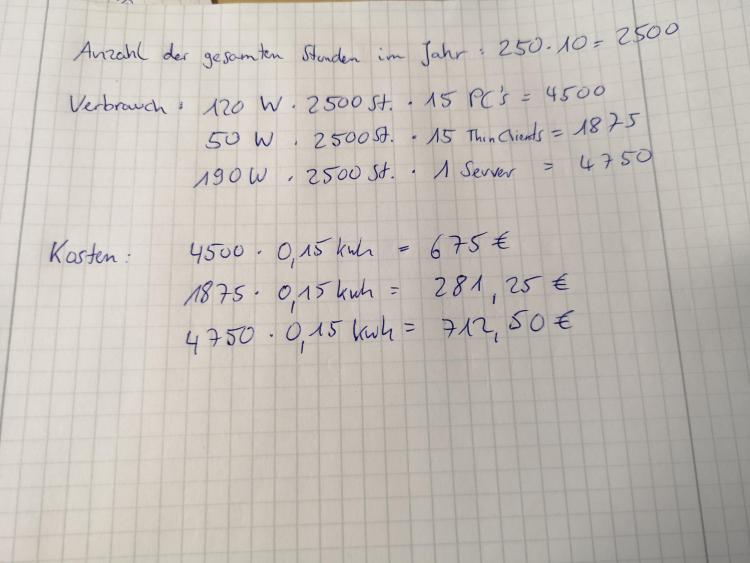 Anzahl der gesamten Stunden im Jahr : 250 · 10 = 2500
Verbrauch : 120 W · 2500 St. · 15 PC's = 4500
50 W · 2500 St. · 15 ThinClients = 1875
190 W · 2500 St. · 1 Server = 4750
Kosten : 4500 · 0,15 kwh = 675 €
1875 · 0,15 kwh = 281,25 €
4750 · 0,15 kwh = 712,50 €